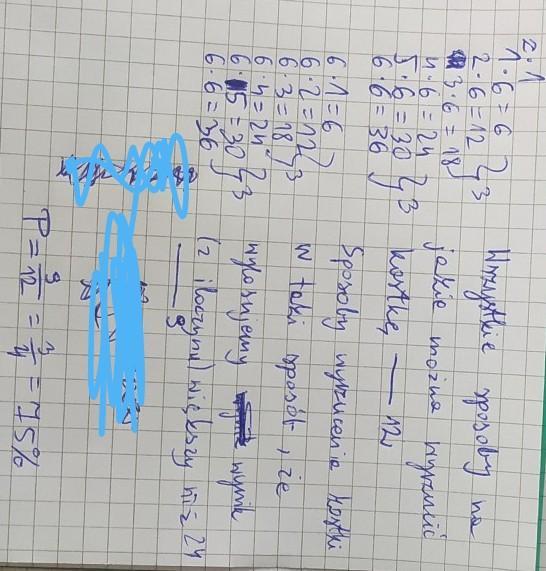 z.1
1·6=6
2·6=12 } 3
3·6=18
4·6=24
5·6=30 } 3
6·6=36
6·1=6
6·2=12 } 3
6·3=18
6·4=24
6·5=30 } 3
6·6=36
Wszystkie sposoby na
jakie można wyrzucić
kostkę — 12
Sposoby wyrzucenia kostki
w taki sposób, że
wylosujemy wynik
(z iloczynu) większy niż 24
— 9
P = 9/12 = 3/4 = 75%